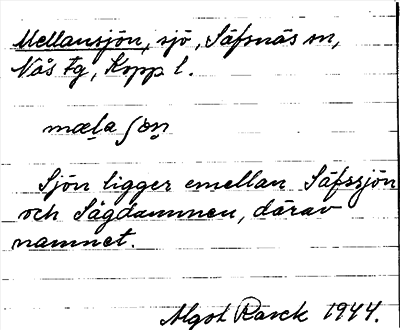 Mellansjön, sjö, Säfsnäs sn,
Nås fg, Kopp l.
mæla ʃøn
Sjön ligger emellan Säfssjön
och Sågdammen, därav
namnet.
Algot Rasck 1944.